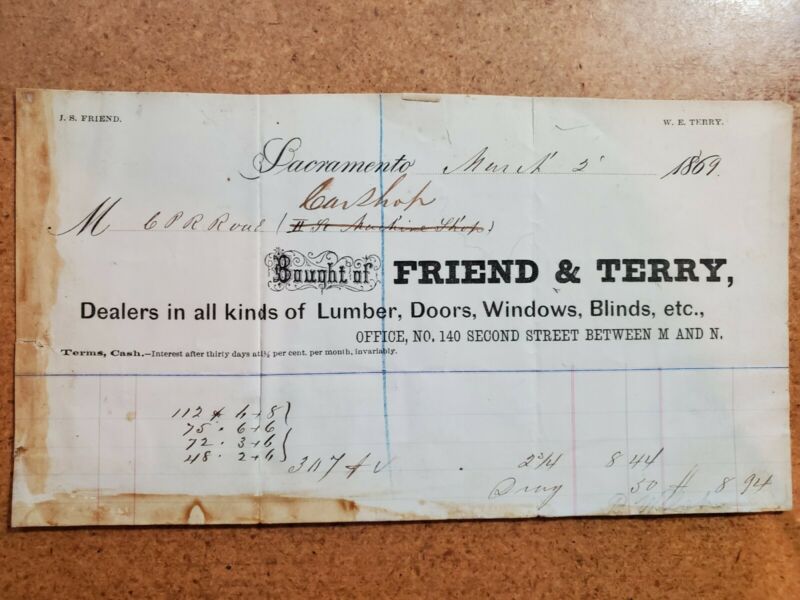 J. S. FRIEND. W. E. TERRY.
Sacramento March 2 1869.
Carshop
M C P R Road (H St Machine Shop)
Bought of FRIEND & TERRY,
Dealers in all kinds of Lumber, Doors, Windows, Blinds, etc.,
OFFICE, NO. 140 SECOND STREET BETWEEN M AND N.
Terms, Cash.—Interest after thirty days at 1½ per cent. per month, invariably.
112 6+8
75 6+6
72 3+6
48 2+6
307 ft 2¾ 8 44
50 8 94